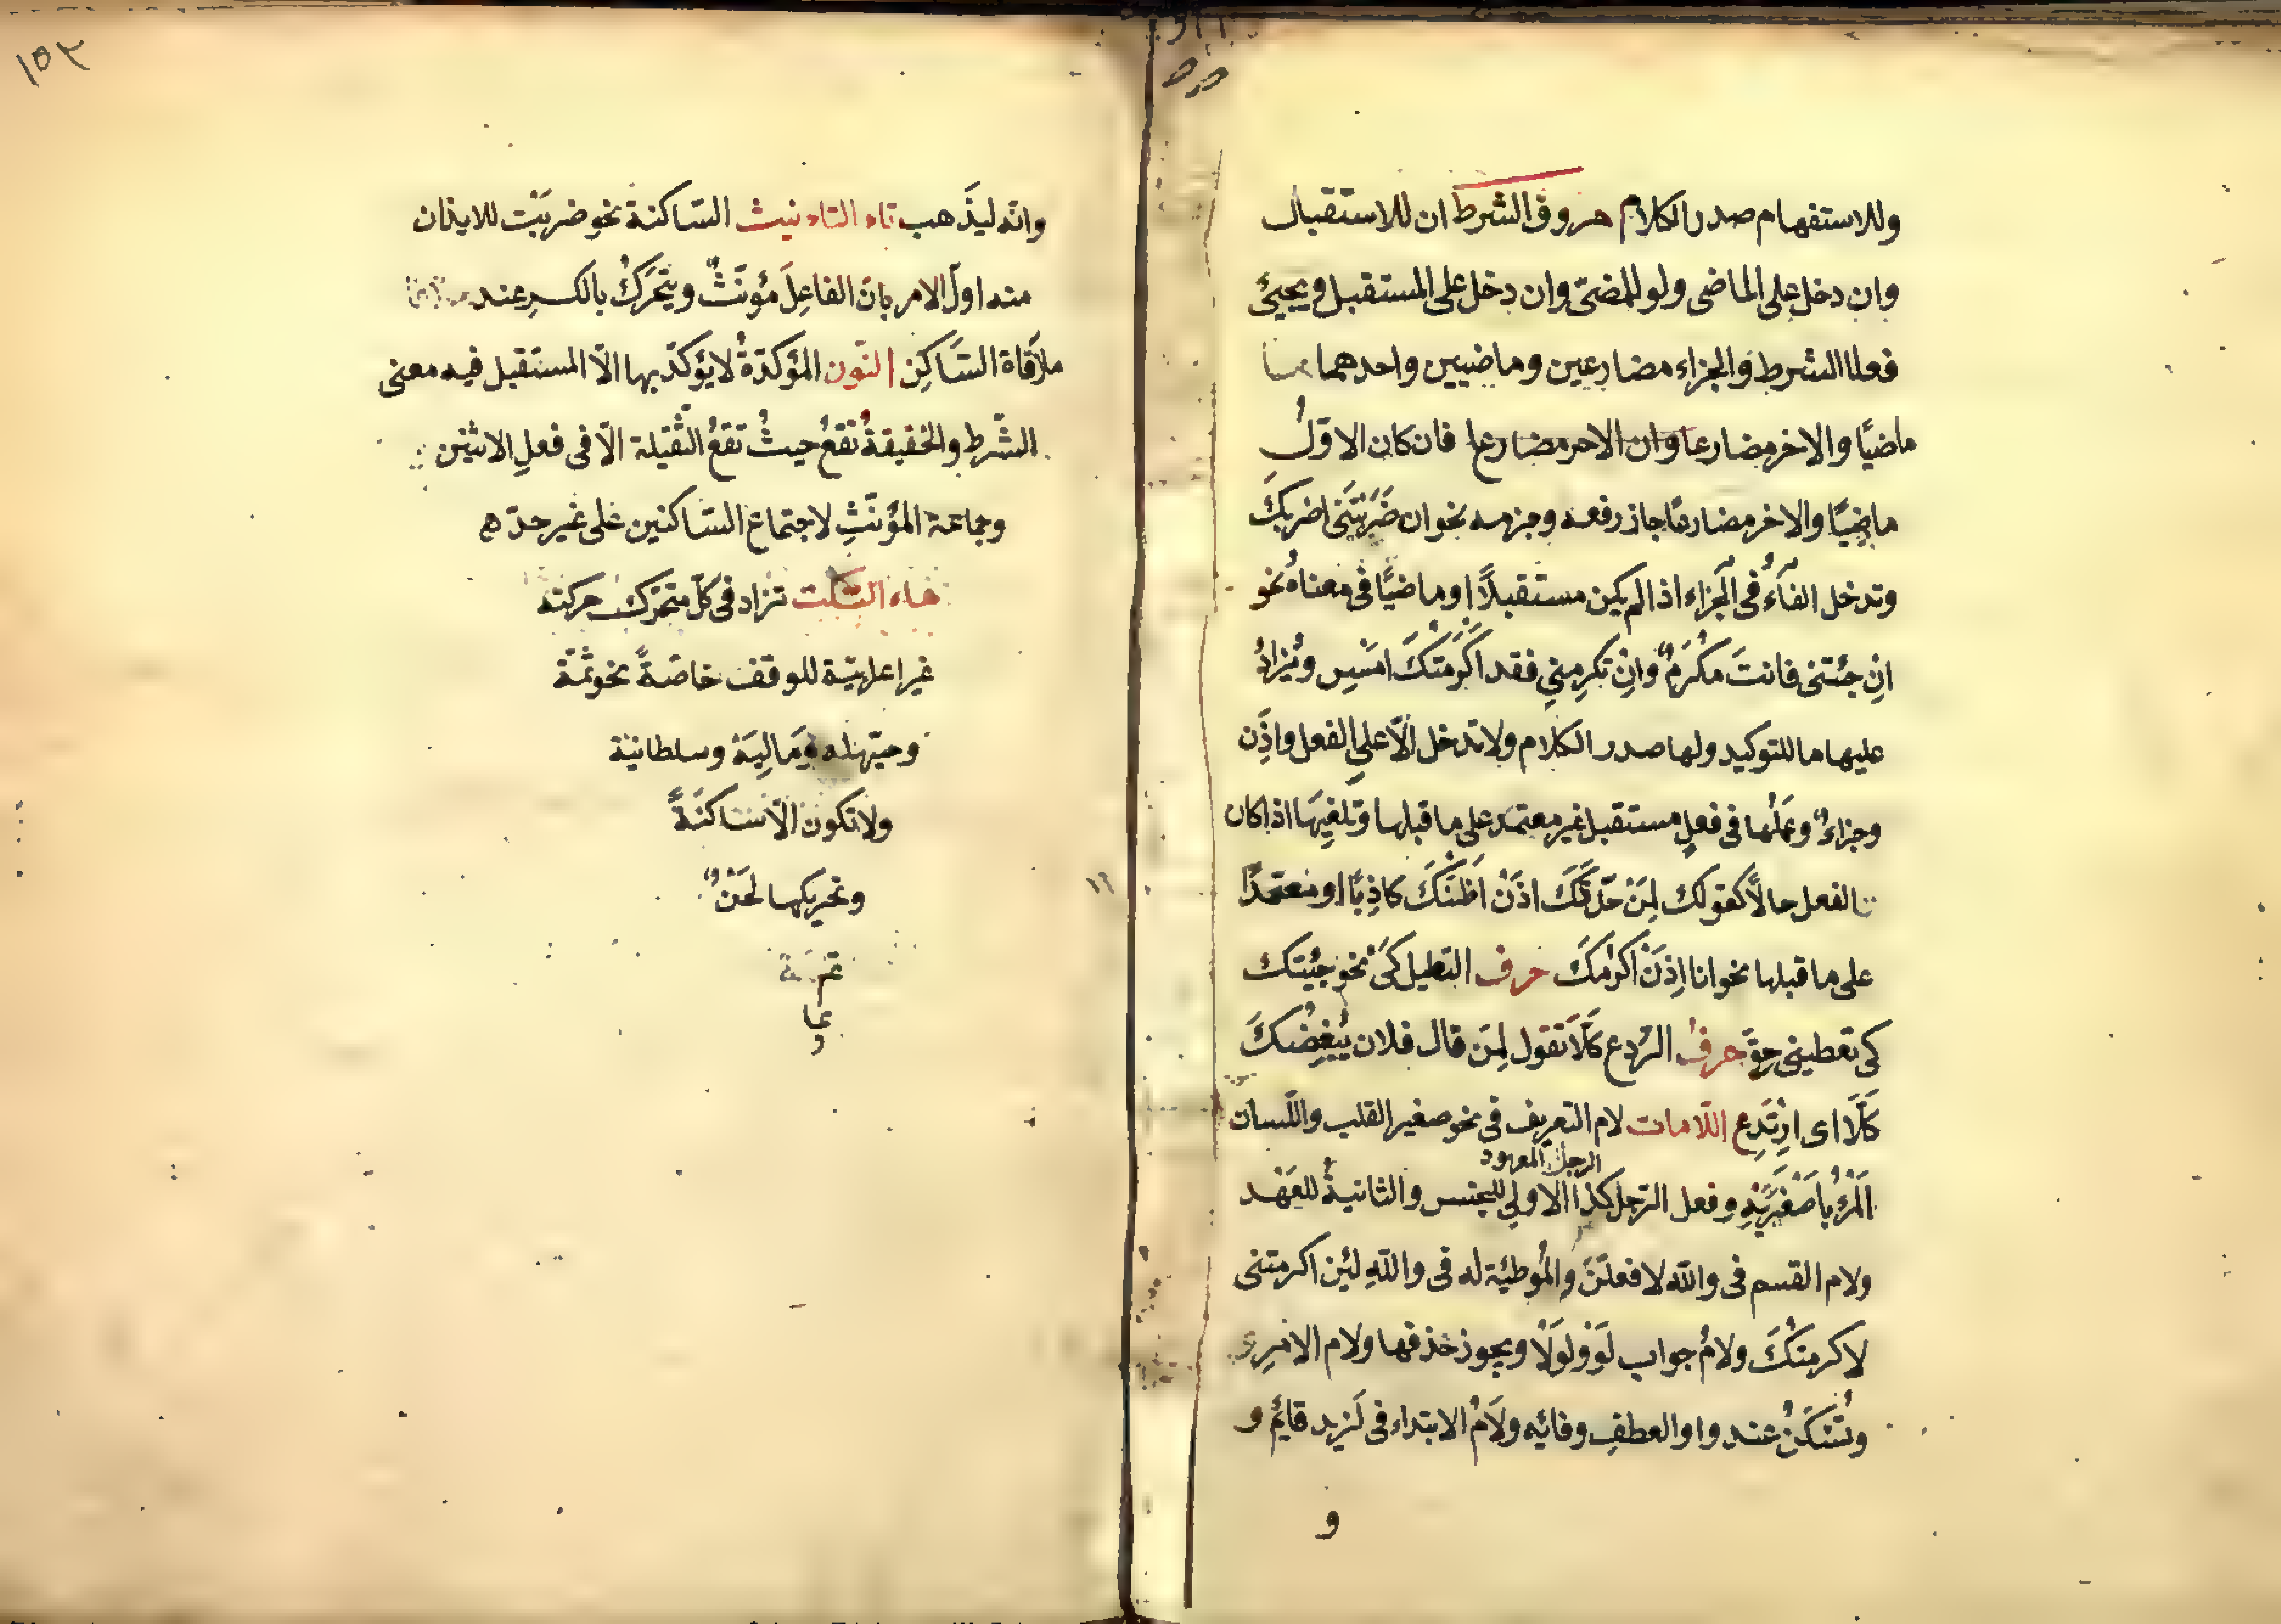 وللاستفهام صدر الكلام حروف الشرط ان للاستقبال
وان دخل على الماضى ولو للمضىّ وان دخل على المستقبل ويجيئ
فعلا الشرط والجزاء مضارعين وماضيين واحدهما
ماضيًا والاخر مضارعا وان الاخر مضارعا فان كان الاوّلُ
ماضِيًا والاخر مضارعًا جاز رفعه وجزمه نحو ان ضَرَبْتَنى اضربكَ
وتدخل الفاءُ فى الجزاء اذا لم يكن مستقبلاً او ماضيًا فى معناهُ نحو
انِ جئتنى فانتَ مكْرَمٌ وانِ تكرِمنى فقد اكرَمتكَ امَسِ ويُزادُ
عليها ما للتوكيد ولها صدر الكلام ولا تدخل الّا على الفعل واذِن
وجزاءٌ وعَمَلُها فى فعلٍ مستقبل غير معتمد على ما قبلها وتلغيِهَا اذا كان
الفعل حالاً كقولك لِمَنْ حَدّثكَ اذَنْ اَظنّكَ كاذِبًا او معتمدًا
على ما قبلها نحو انا اِذَنْ اكرمكَ حرف التعليل كَىْ نحو جئيتك
كى تعطينى حقّى حرفُ الرّدع كَلّا تقول لِمَنَ قال فلان يُبْغِضُكَ
كَلّا اى ارْتَدِع اللّامات لام التعريف فى نحو صغير القلب واللّسان
الرجل المعهود
اَلْمَرْءُ بِاَصْغَرَيْهِ وفعل الرّجل كذا الاولى للجنس والثانيةُ للعَهْد
ولام القسم فى واللّه لافعلَنَّ والمُوطِئة له فى واللّهِ لئِن اكرمتنى
لاكرمتكَ ولامُ جواب لَوْ ولَوْلَا ويجوز حذفها ولام الامرِ
وتُسَكّنُ عند واو العطفِ وفائه ولَامُ الابتداء فى لَزيد قايُم و
و
١٥٢
وانّه ليذَهب تاء التاءنيث السّاكنة نحو ضربَتْ للايذان
منه اولَ الامر بانّ الفاعِلَ مُؤنّثٌ ويتحَرّكُ بالكسرِ عند
ملاَقاة السّاكِن النّون المؤكدّةُ لا يؤكّد بها الّا المستقبل فيه معنى
الشّرط والخفيفةُ تقعُ حيثُ تقعُ الثّقيلة الّا فى فعلِ الاثنين
وجماعة المؤنّثِ لاجتماع السّاكنين على غير حدّه
هاء السّكت تزاد فى كلّ متحرّك حركته
غير اعرابيّة للوقف خاصّةً نحو ثمّة
وحيّهله ومَالِيَهْ وسلطانيَه
ولا تكون الّا ساكنَةً
وتحريكها لَحَنٌ